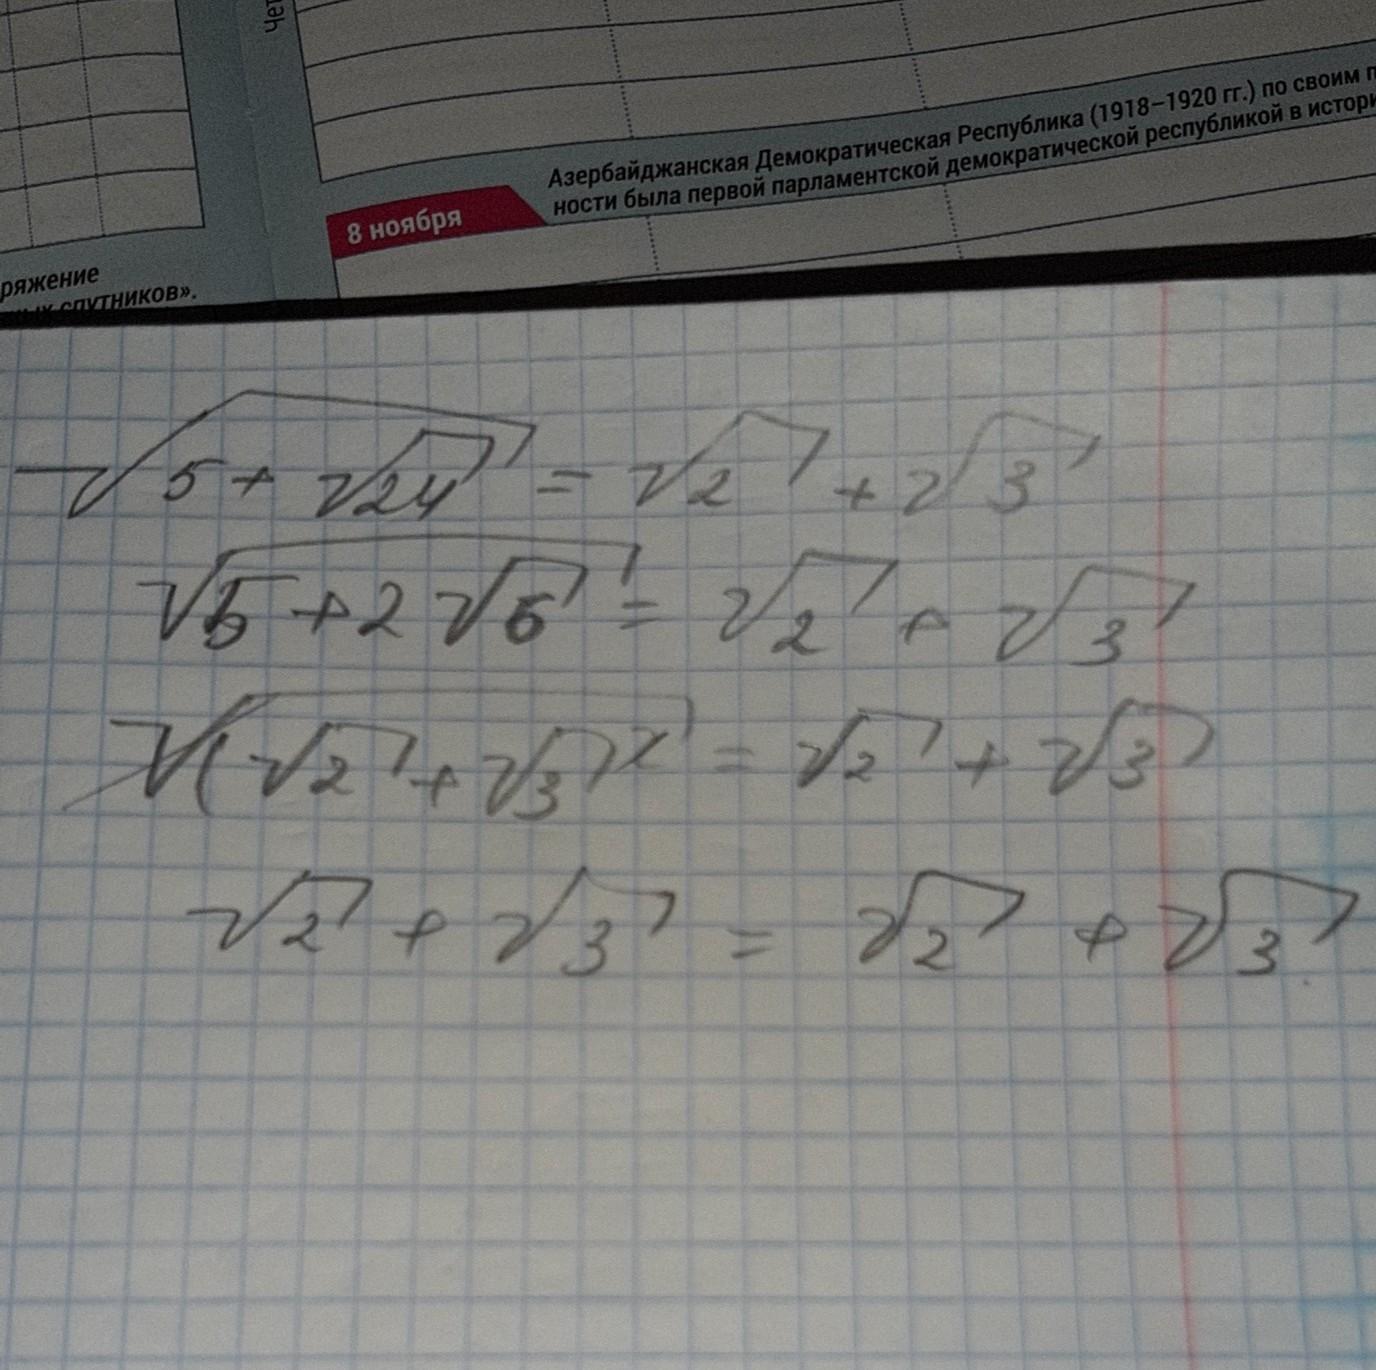 Чет
Азербайджанская Демократическая Республика (1918–1920 гг.) по своим
ности была первой парламентской демократической республикой в истори
8 ноября
ряжение
ных спутников».
√(5 + √24) = √2 + √3
√(5 + 2√6) = √2 + √3
√(√2 + √3)² = √2 + √3
√2 + √3 = √2 + √3